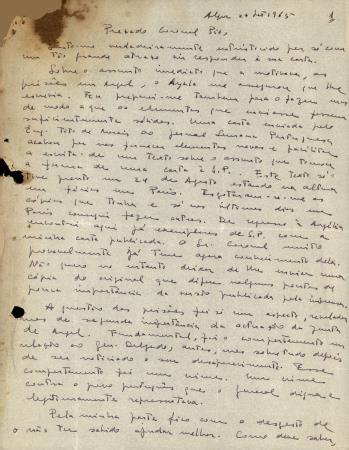 Argel 20 Set 1965
1
Prezado Coronel Pio,
Sinto-me verdadeiramente entristecido por só com
um tão grande atraso vir responder à sua carta.
Sobre o assunto imediato que a motivava, as
prisões em Argel, o Ayala me assegurou que lhe
escrevia. Eu preparei-me também para o fazer mas
de modo a que os elementos que enviasse fossem
suficientemente sólidos. Uma carta enviada pelo
Eng. Tito de Morais ao jornal Semana Portuguesa
acabou por nos fornecer elementos novos e permitiu
a escrita de um texto sobre o assunto que tomou
a forma de uma carta à S.P. Este texto só
ficou pronto em de Agosto estando na altura
em férias em Paris. Esgotaram-se-me as
cópias que tinha e só nos últimos dias em
Paris consegui fazer outras. De regresso à Argélia
encontrei aqui já exemplares do S.P. com a
minha carta publicada. O Sr. Coronel muito
provavelmente já teve agora conhecimento dela.
Não quero no entanto deixar de lhe enviar uma
cópia do original que difere nalguns pontos de
pouca importância da versão publicada pela imprensa.
A questão das prisões foi só um aspecto, revelador
mas de segunda importância da actuação da junta
de Argel. Fundamental, foi o comportamento em
relação ao Gen. Delgado, antes, mas sobretudo depois
de ser noticiado o seu desaparecimento. Esse
comportamento foi um crime. Um crime
contra o povo português que o general digna e
legitimamente representava.
Pela minha parte fico com o desgosto de
o não ter sabido ajudar melhor. Como deve saber,